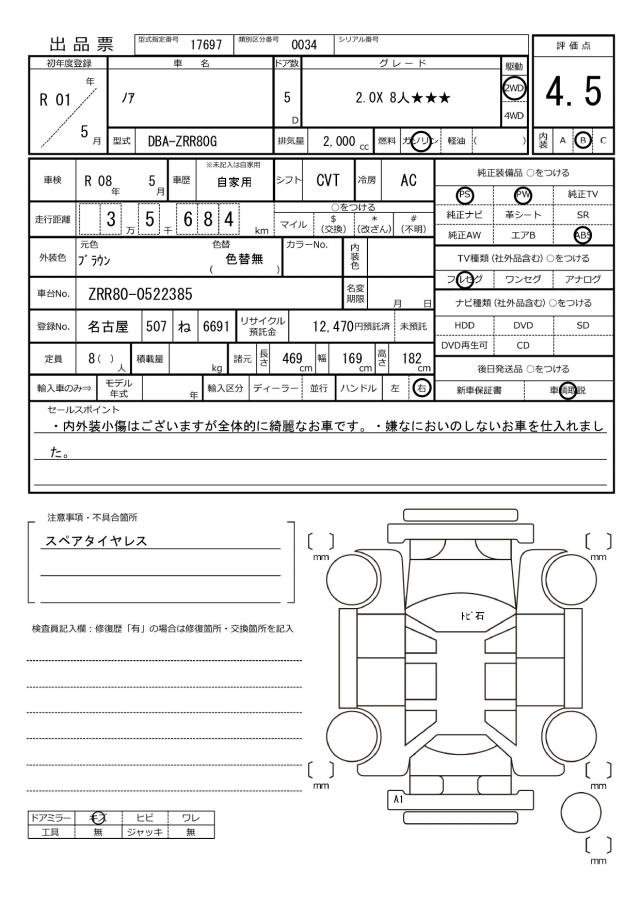 出品票
型式指定番号 17697 類別区分番号 0034 シリアル番号
評価点
初年度登録 車名 ドア数 グレード 駆動
R 01 年 5 月
ノア
5 D
2.0X 8人★★★
2WD
4WD
4.5
型式 DBA-ZRR80G 排気量 2,000 cc 燃料 ガソリン 軽油 ( )
内装 A B C
車検 R 08 年 5 月 車歴 ※未記入は自家用 自家用 シフト CVT 冷房 AC
走行距離 3 万 5 千 6 8 4 km
○をつける
マイル $(交換) *(改ざん) #(不明)
外装色 元色 ブラウン 色替 色替無 ( ) カラーNo. 内装色
車台No. ZRR80-0522385 名変期限 月 日
登録No. 名古屋 507 ね 6691 リサイクル預託金 12,470円預託済 未預託
定員 8( ) 人 積載量 kg 諸元 長さ 469 cm 幅 169 cm 高さ 182 cm
輸入車のみ⇒ モデル年式 年 輸入区分 ディーラー 並行 ハンドル 左 右
純正装備品 ○をつける
PS PW 純正TV
純正ナビ 革シート SR
純正AW エアB ABS
TV種類 (社外品含む) ○をつける
フルセグ ワンセグ アナログ
ナビ種類 (社外品含む) ○をつける
HDD DVD SD
DVD再生可 CD
後日発送品 ○をつける
新車保証書 車輌取説
セールスポイント
・内外装小傷はございますが全体的に綺麗なお車です。・嫌なにおいのしないお車を仕入れまし
た。
注意事項・不具合箇所
スペアタイヤレス
検査員記入欄：修復歴「有」の場合は修復箇所・交換箇所を記入
ドアミラー キズ ヒビ ワレ
工具 無 ジャッキ 無
〔 〕 mm
〔 〕 mm
トビ石
〔 〕 mm
〔 〕 mm
A1
〔 〕 mm